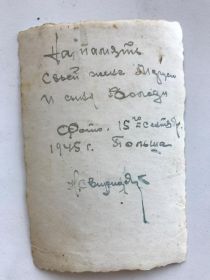 На память
Своей жене Марусе
и сыну Володи
Фото. 15го сентяб.
1945 г. Польша